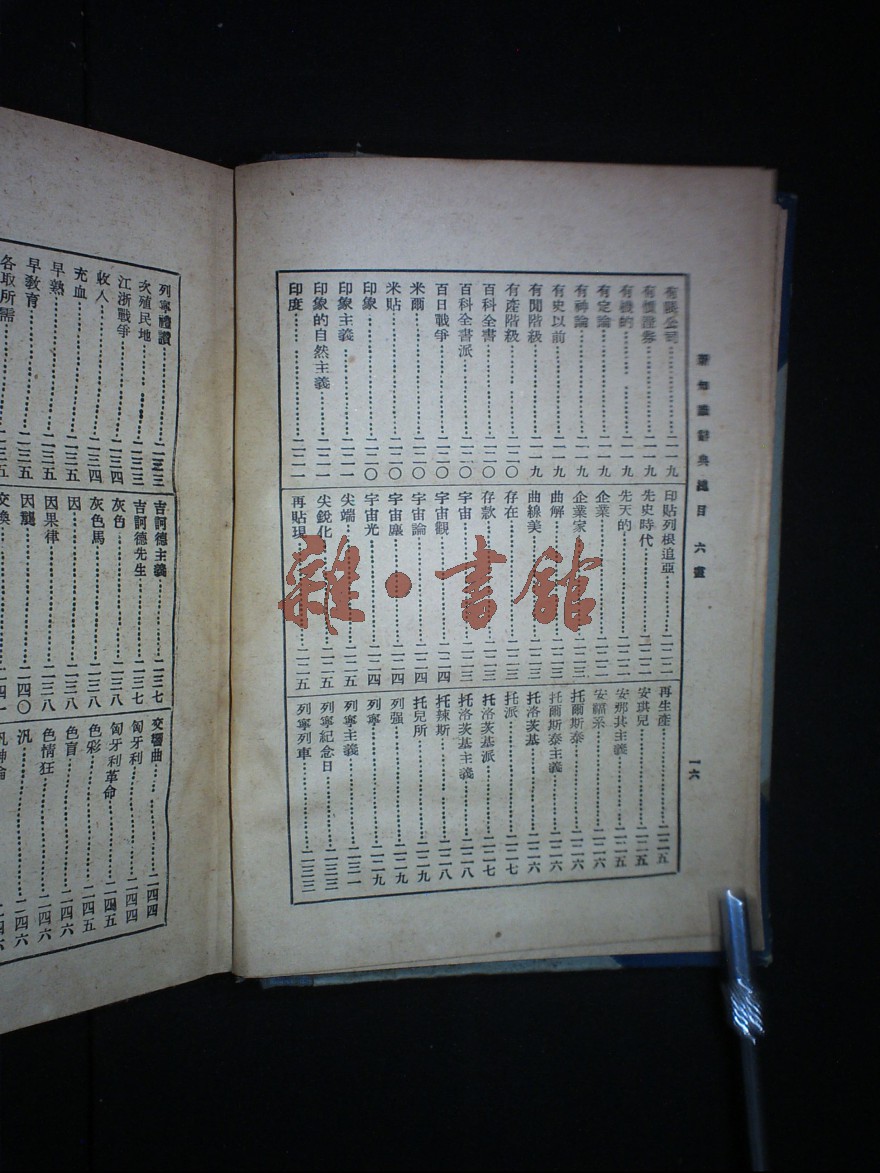 新知識辭典總目 六畫
一六
有限公司 二一九
有價證券 二一九
有機的 二一九
有定論 二一九
有神論 二一九
有史以前 二一九
有閒階級 二一九
有產階級 二二〇
百科全書 二二〇
百科全書派 二二〇
百日戰爭 二二〇
米爾 二二〇
米貼 二二〇
印象 二二〇
印象主義 二二一
印象的自然主義 二二一
印度 二二一
印貼列根追亞 二二二
先史時代 二二二
先天的 二二二
企業 二二二
企業家 二二三
曲解 二二三
曲線美 二二三
存在 二二三
存款 二二三
宇宙 二二三
宇宙觀 二二四
宇宙論 二二四
宇宙塵 二二四
宇宙光 二二四
尖端 二二五
尖銳化 二二五
再貼現 二二五
再生產 二二五
安琪兒 二二五
安那其主義 二二五
安福系 二二六
托爾斯泰 二二六
托爾斯泰主義 二二六
托洛茨基 二二六
托派 二二七
托洛茨基派 二二七
托洛茨基主義 二二八
托辣斯 二二八
托兒所 二二九
列强 二二九
列寧 二二九
列寧主義 二三一
列寧紀念日 二三三
列寧列車 二三三
列寧禮讚 二三三
次殖民地 二三三
江浙戰爭 二三四
收入 二三四
充血 二三五
早熟 二三五
早教育 二三五
各取所需 二三五
吉訶德主義 二三七
吉訶德先生 二三七
灰色 二三八
灰色馬 二三八
因 二三八
因果律 二三八
因襲 二四〇
交換 二四一
交響曲 二四四
匈牙利 二四四
匈牙利革命 二四五
色彩 二四五
色盲 二四六
色情狂 二四六
汎 二四六
汎神論 二四六
雜·書館